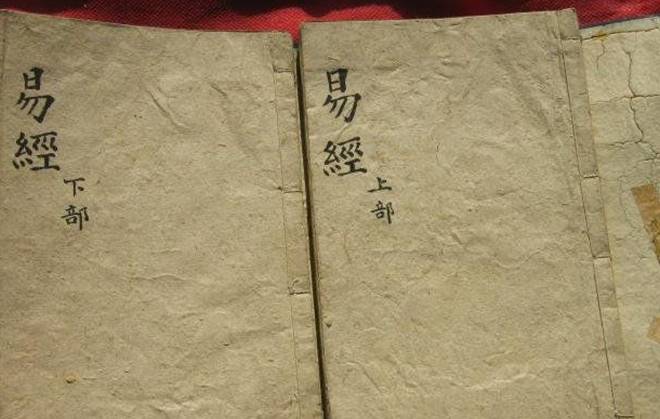 易經
上部
易經
下部